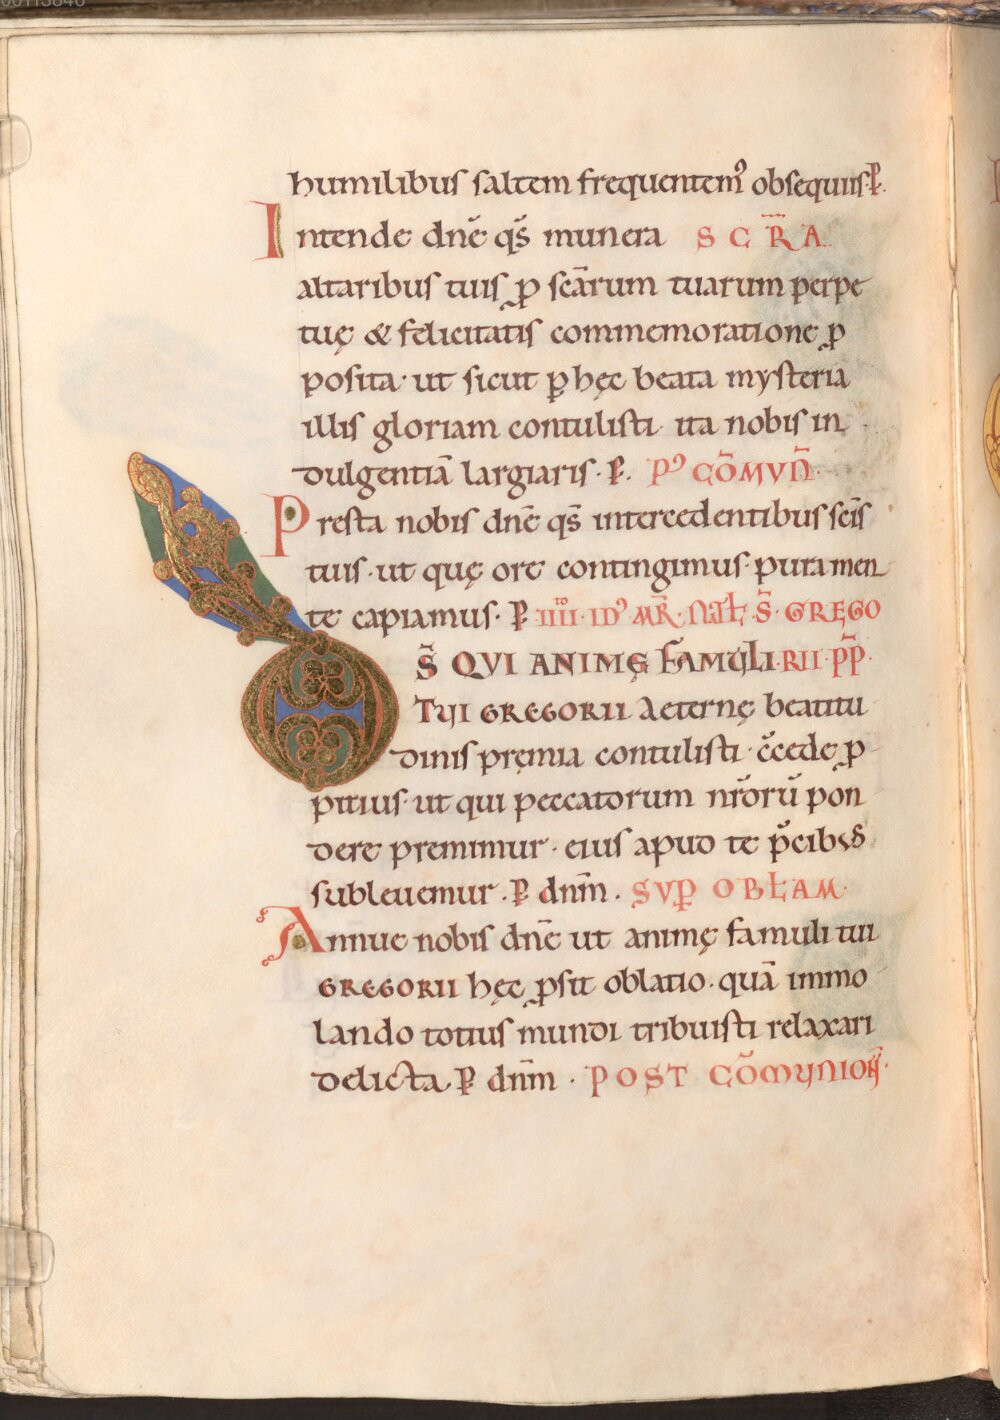 humilibus saltem frequentem⁹ obsequiis·ꝑ.
Intende dn̄e qs̄ munera S C R̄ A
altaribus tuis ꝓ sc̄arum tuarum perpe
tuę & felicitatis commemoratione ꝓ
posita· ut sicut ꝑ hęc beata mysteria
illis gloriam contulisti· ita nobis in
dulgentiā largiaris· ꝑ. P⁹ CŌMVN̄·
Presta nobis dn̄e qs̄ intercedentibus sc̄is
tuis· ut quę ore contingimus· pura men
te capiamus· ꝑ IIII· ID⁹ MR̄· NAT̄L S̄· GREGO
D̄S QVI ANIMĘ FAMVLI· RII· PP̄·
TVI GREGORII Aeternę beatitu
dinis pręmia contulisti· c̄cede ꝓ
pitius· ut qui peccatorum nr̄orū pon
dere premimur· eius apud te p̄cibus
subleuemur· ꝑ dn̄m. SVꝑ OBŁAM·
Annue nobis dn̄e ut animę famuli tui
GREGORII hęc ꝓsit oblatio· quā immo
lando totius mundi tribuisti relaxari
delicta· ꝑ dn̄m · POST CŌMVNION̄·